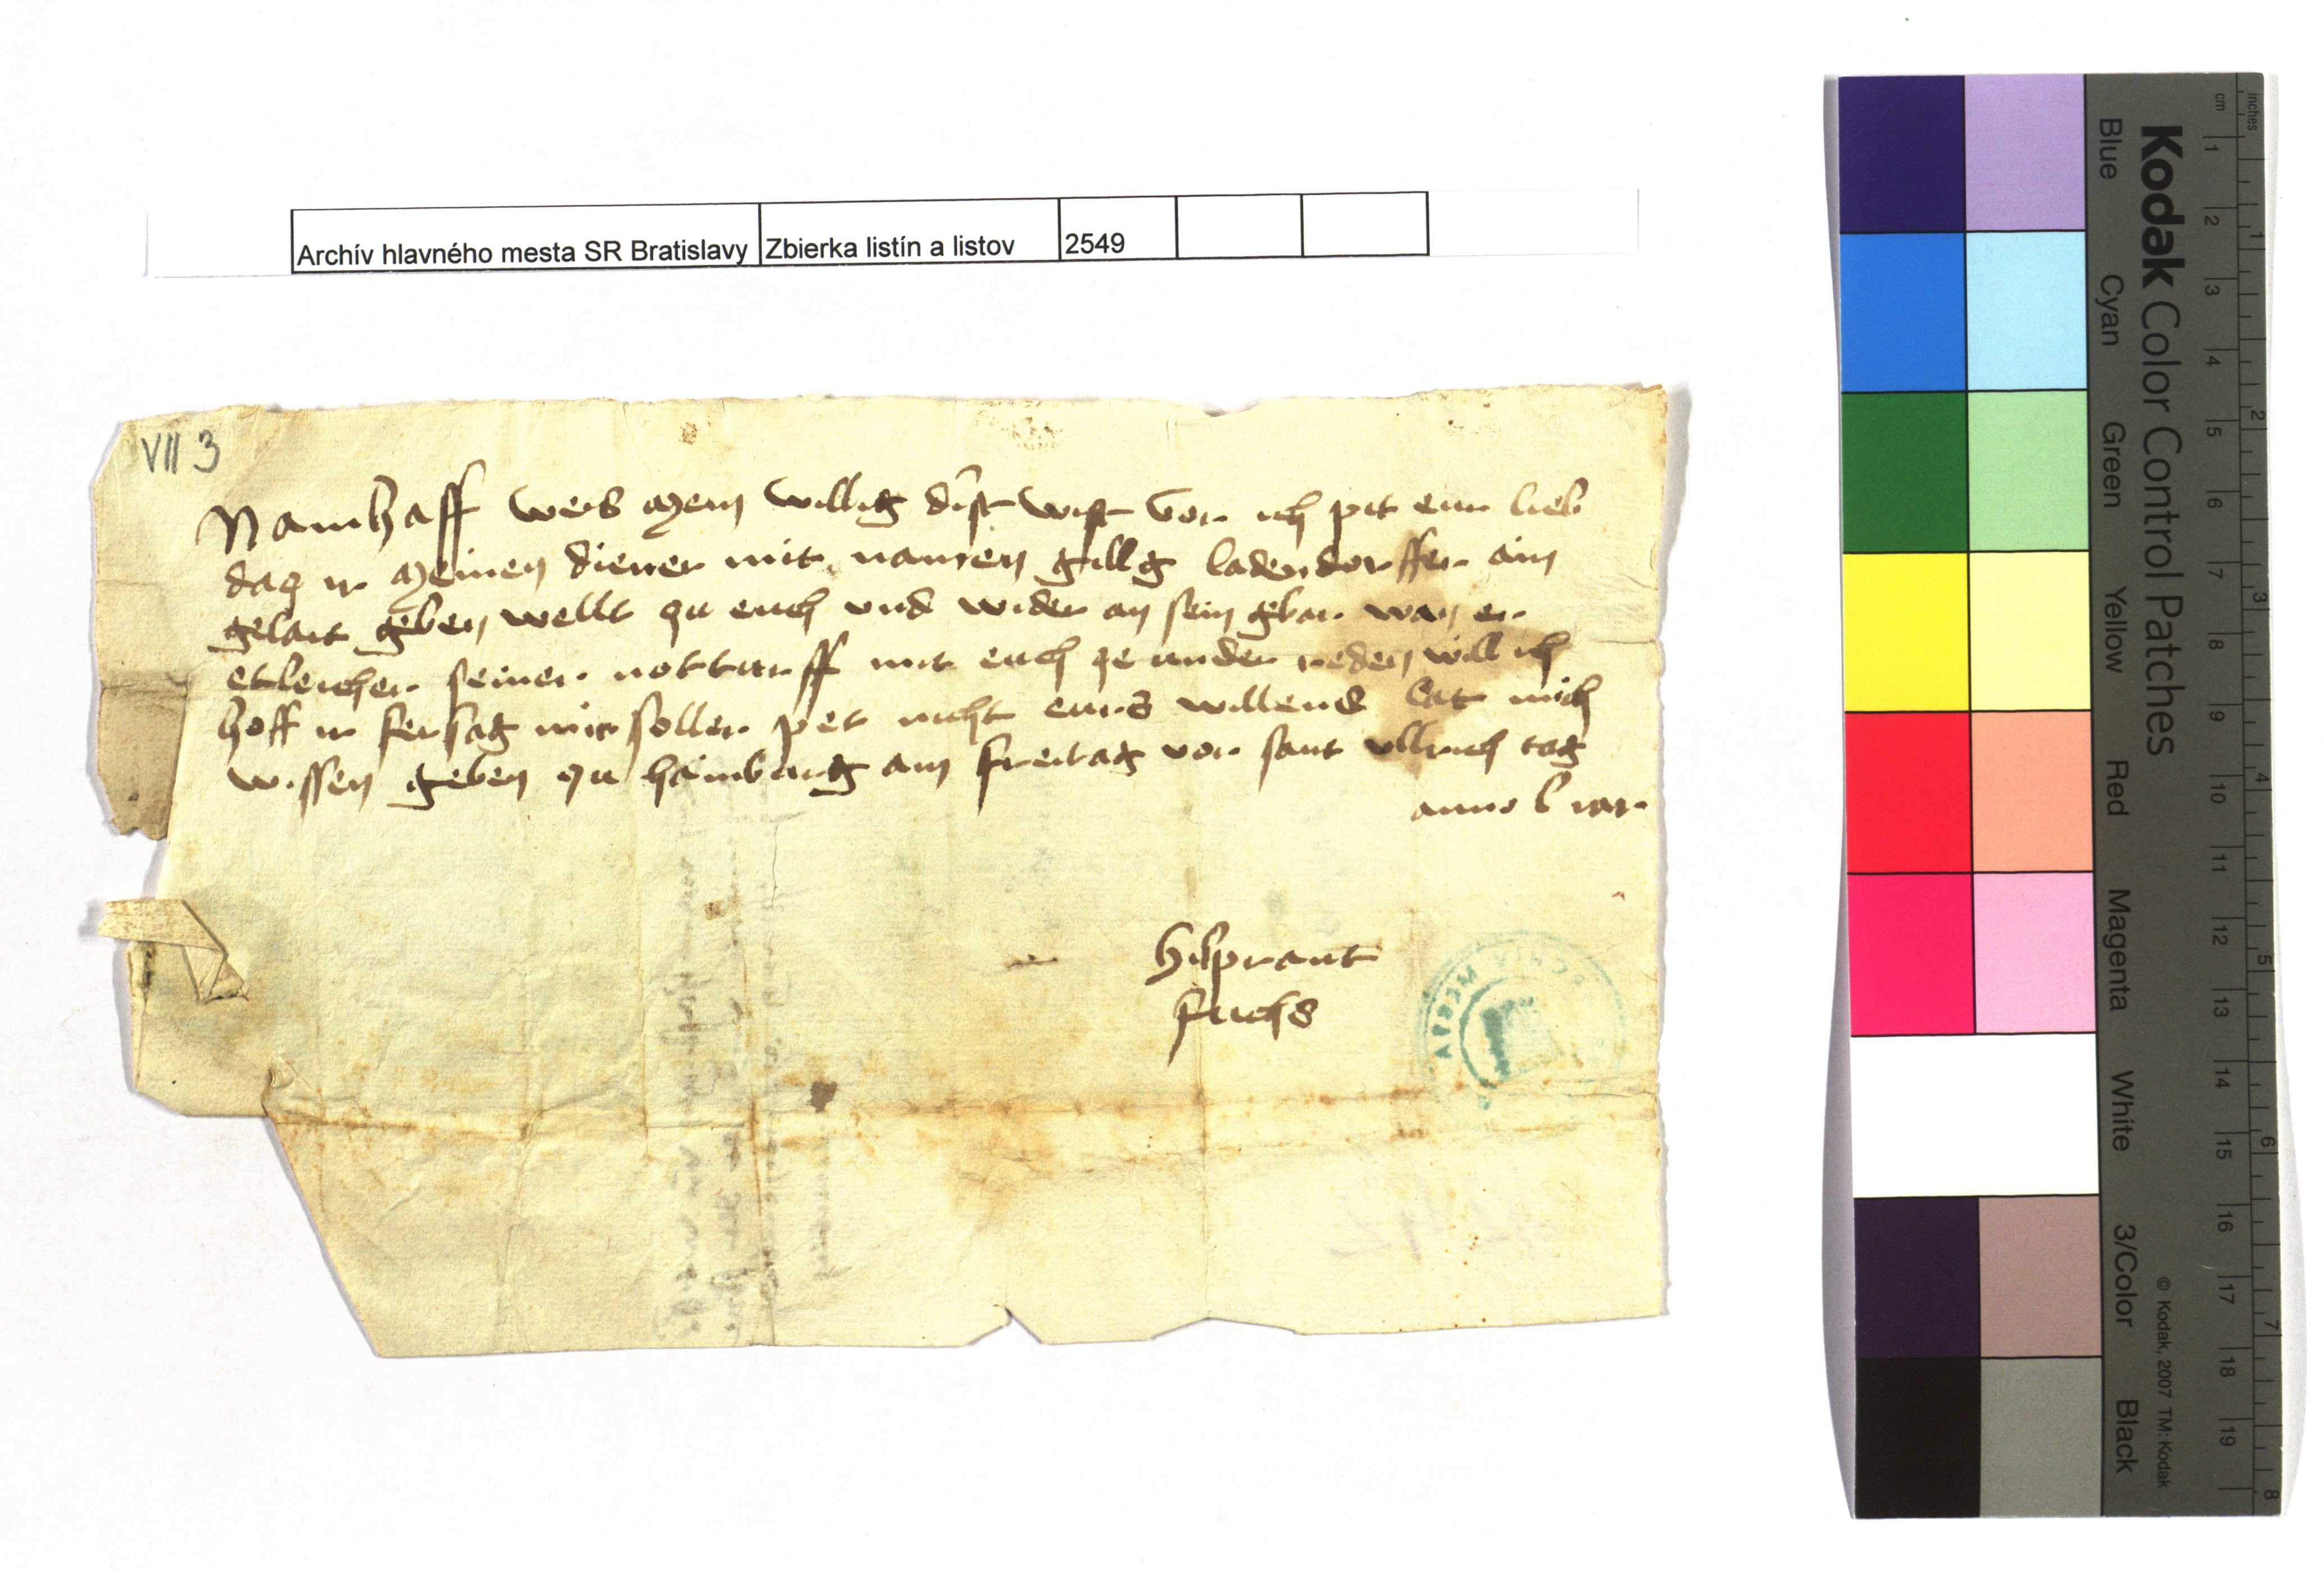 Archív hlavného mesta SR Bratislavy Zbierka listín a listov 2549
VII 3
Namhaff weis mein willig dist wist vor ich pit eur lieb
daz ir meinen diener mit namen gillg ladendorffer ain
gelait geben wellt zu euch und wider an sein gebar wan er
etleicher seiner notturff mit euch ze under reden will ich
hoff ir fersag mir soller pet nicht eurs willens lat mich
wissen geben zu haimburg am freitag vor sant ullrich tag
anno
hilprant
fuchs
Kodak Color Control Patches
Blue Cyan Green Yellow Red Magenta White 3/Color Black
© Kodak, 2007 TM: Kodak
cm 1 2 3 4 5 6 7 8 9 10 11 12 13 14 15 16 17 18 19
inches 1 2 3 4 5 6 7 8